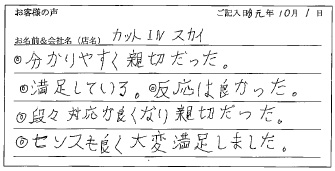 お客様の声 ご記入日 元年10月1日
お名前&会社名(店名) カットINスカイ
◎分かりやすく親切だった。
◎満足している。◎反応は良かった。
◎段々対応が良くなり親切だった。
◎センスも良く大変満足しました。